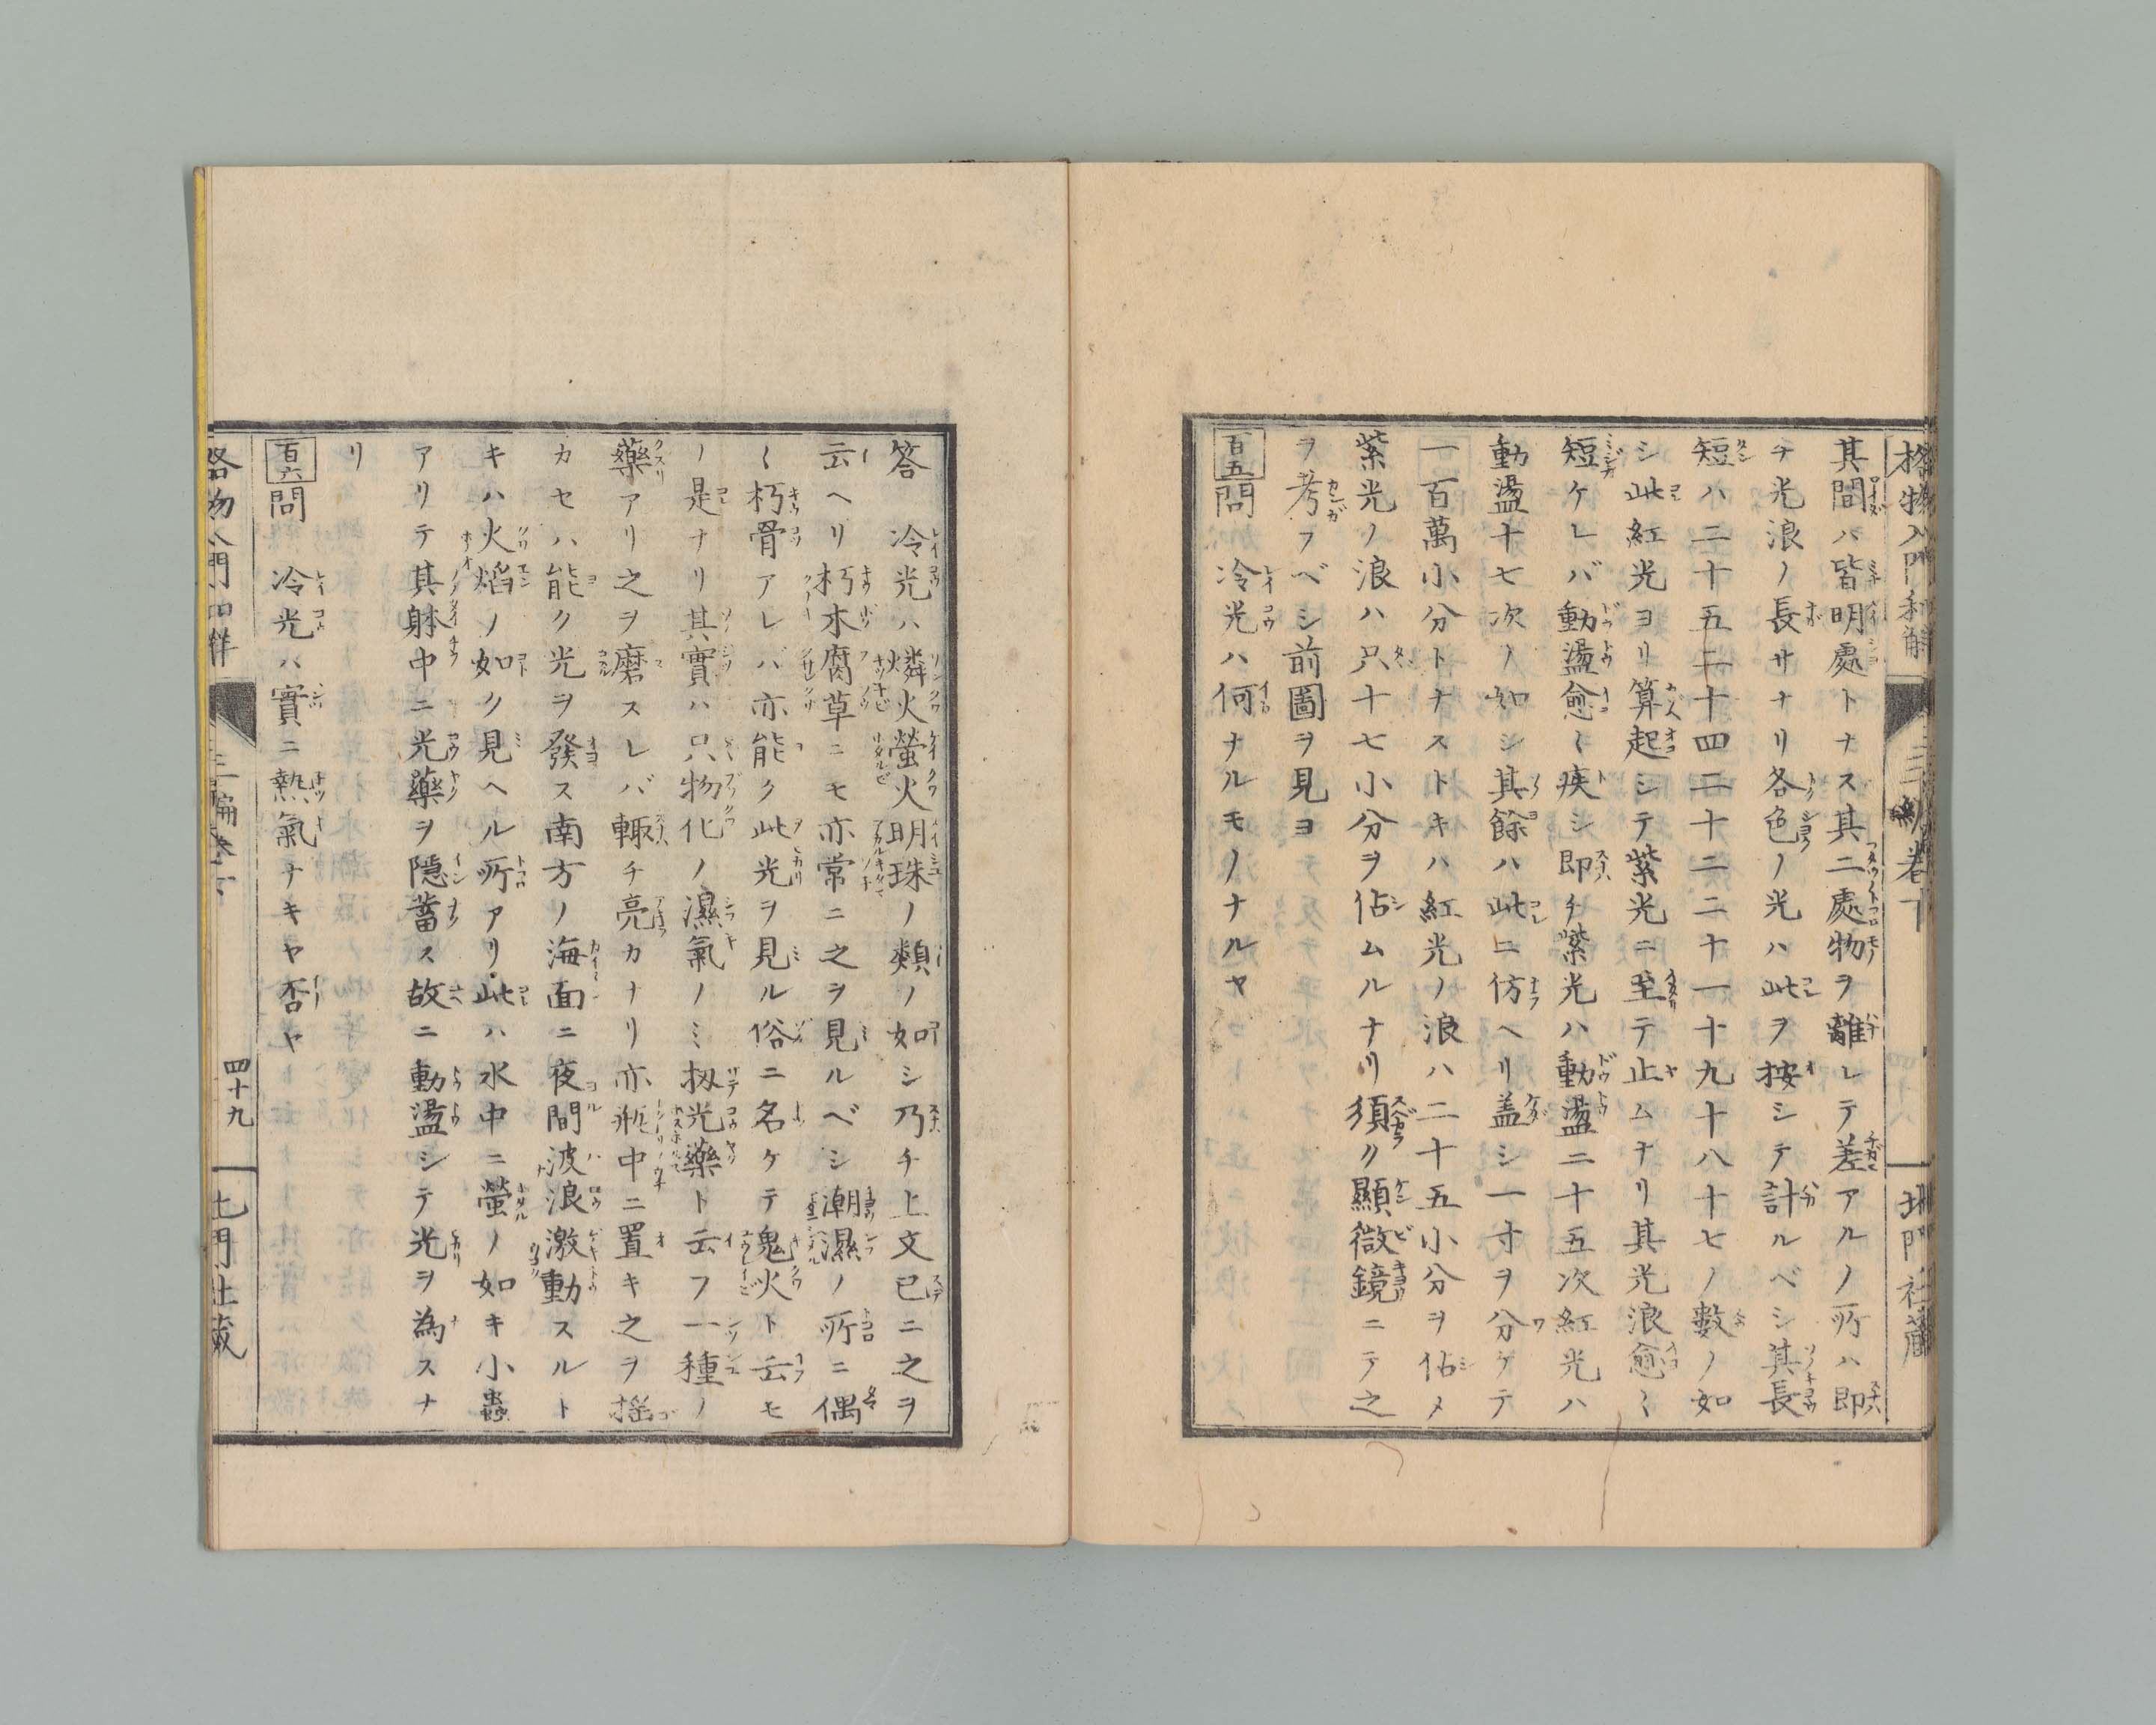 格物入門和解 三編卷下
其間ハ皆明處トナス其二處物ヲ離レテ差アルノ所ハ即
チ光浪ノ長サナリ各色ノ光ハ此ヲ按シテ計ルベシ其長
短ハ二十五二十四二十二二十一十九十八十七ノ數ノ如
シ此紅光ヨリ算起シテ紫光ニ至テ止ムナリ其光浪愈〻
短ケレバ動盪愈〻疾シ即チ紫光ハ動盪二十五次紅光ハ
動盪十七次ノ如シ其餘ハ此ニ仿ヘリ盖シ一寸ヲ分ケテ
一百萬小分トナストキハ紅光ノ浪ハ二十五小分ヲ佔メ
紫光ノ浪ハ只十七小分ヲ佔ムルナリ須ク顯微鏡ニテ之
ヲ考フベシ前圖ヲ見ヨ
百五問 冷光ハ何ナルモノナルヤ
答 冷光ハ燐火螢火明珠ノ類ノ如シ乃チ上文已ニ之ヲ
云ヘリ朽木腐草ニモ亦常ニ之ヲ見ルベシ潮濕ノ所ニ偶
〻朽骨アレバ亦能ク此光ヲ見ル俗ニ名ケテ鬼火ト云モ
ノ是ナリ其實ハ只物化ノ濕氣ノミ扨光藥ト云フ一種ノ
藥アリ之ヲ磨スレバ輙チ亮カナリ亦瓶中ニ置キ之ヲ搖
カセハ能ク光ヲ發ス南方ノ海面ニ夜間波浪激動スルト
キハ火焰ノ如ク見ヘル所アリ此ハ水中ニ螢ノ如キ小蟲
アリテ其躰中ニ光藥ヲ隱蓄ス故ニ動盪シテ光ヲ為スナ
リ
百六問 冷光ハ實ニ熱氣ナキヤ否ヤ
格物入門和解 三編卷下 四十九